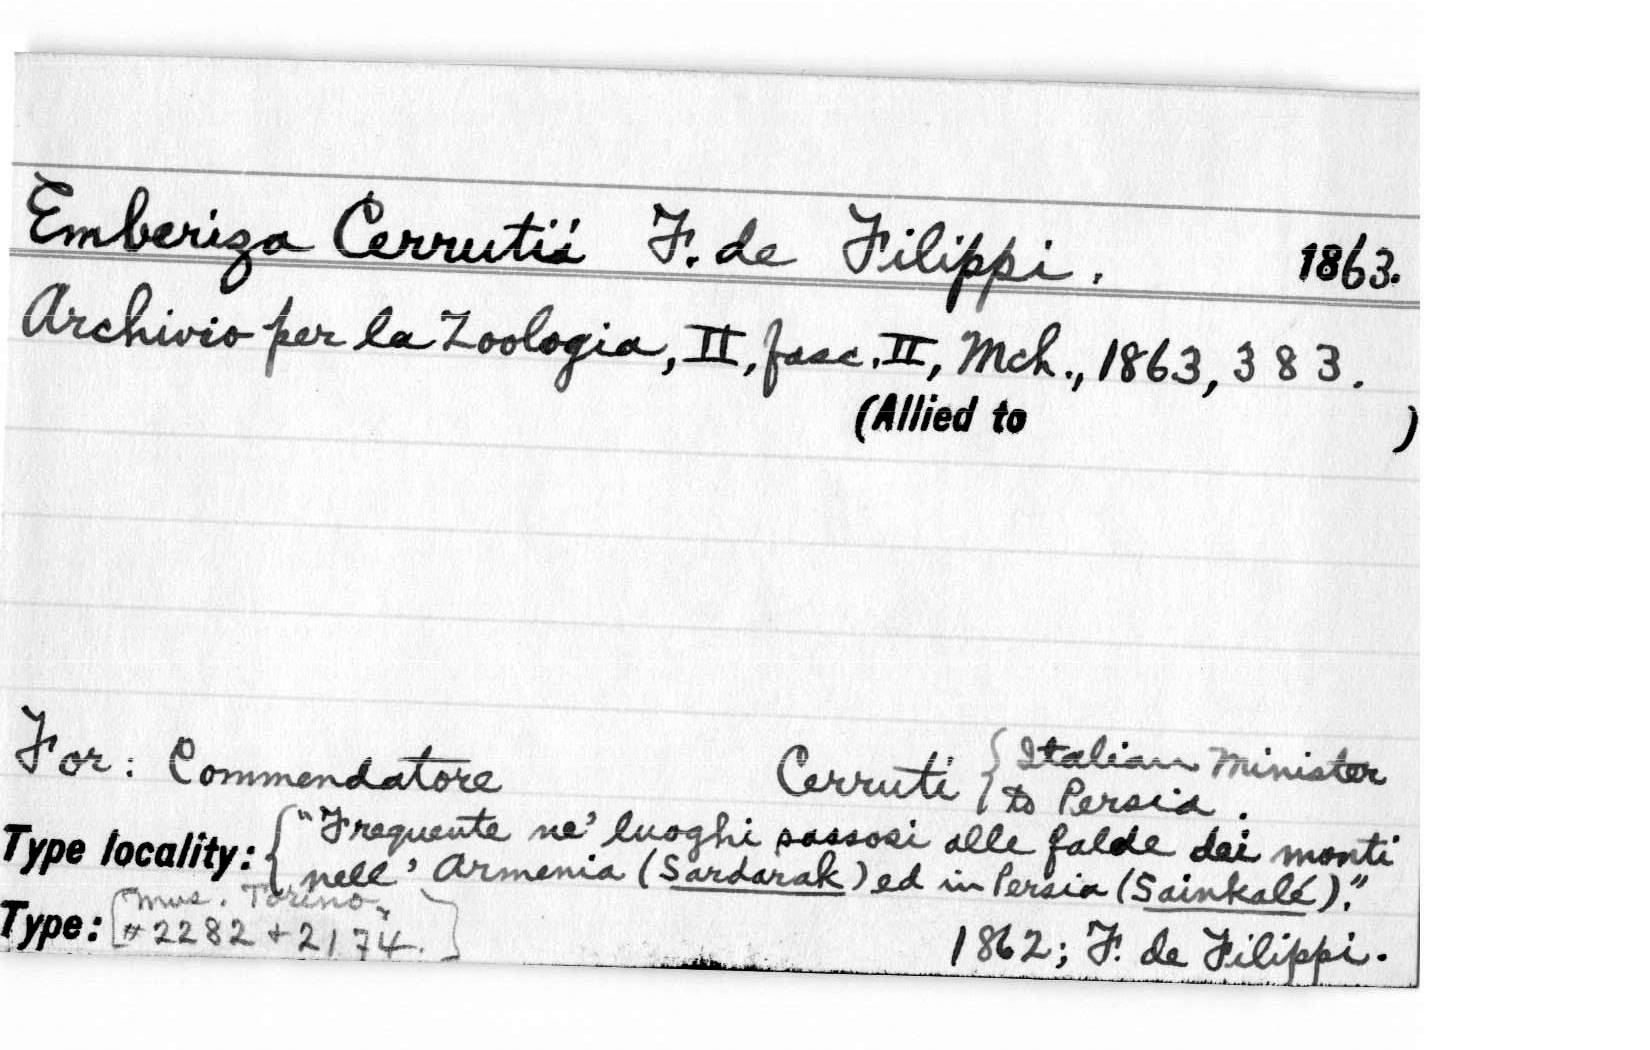 Emberiza Cerrutii F. de Filippi. 1863.
Archivio per la Zoologia, II, fasc. II, Mch., 1863, 383.
(Allied to )
For: Commendatore Cerruti { Italian Minister
to Persia.
Type locality: { "Frequente ne' luoghi sassosi alle falde dei monti
nell' Armenia (Sardarak) ed in Persia (Sainkalé)."
Type: [Mus. Torino,
#2282 + 2174.]
1862; F. de Filippi.